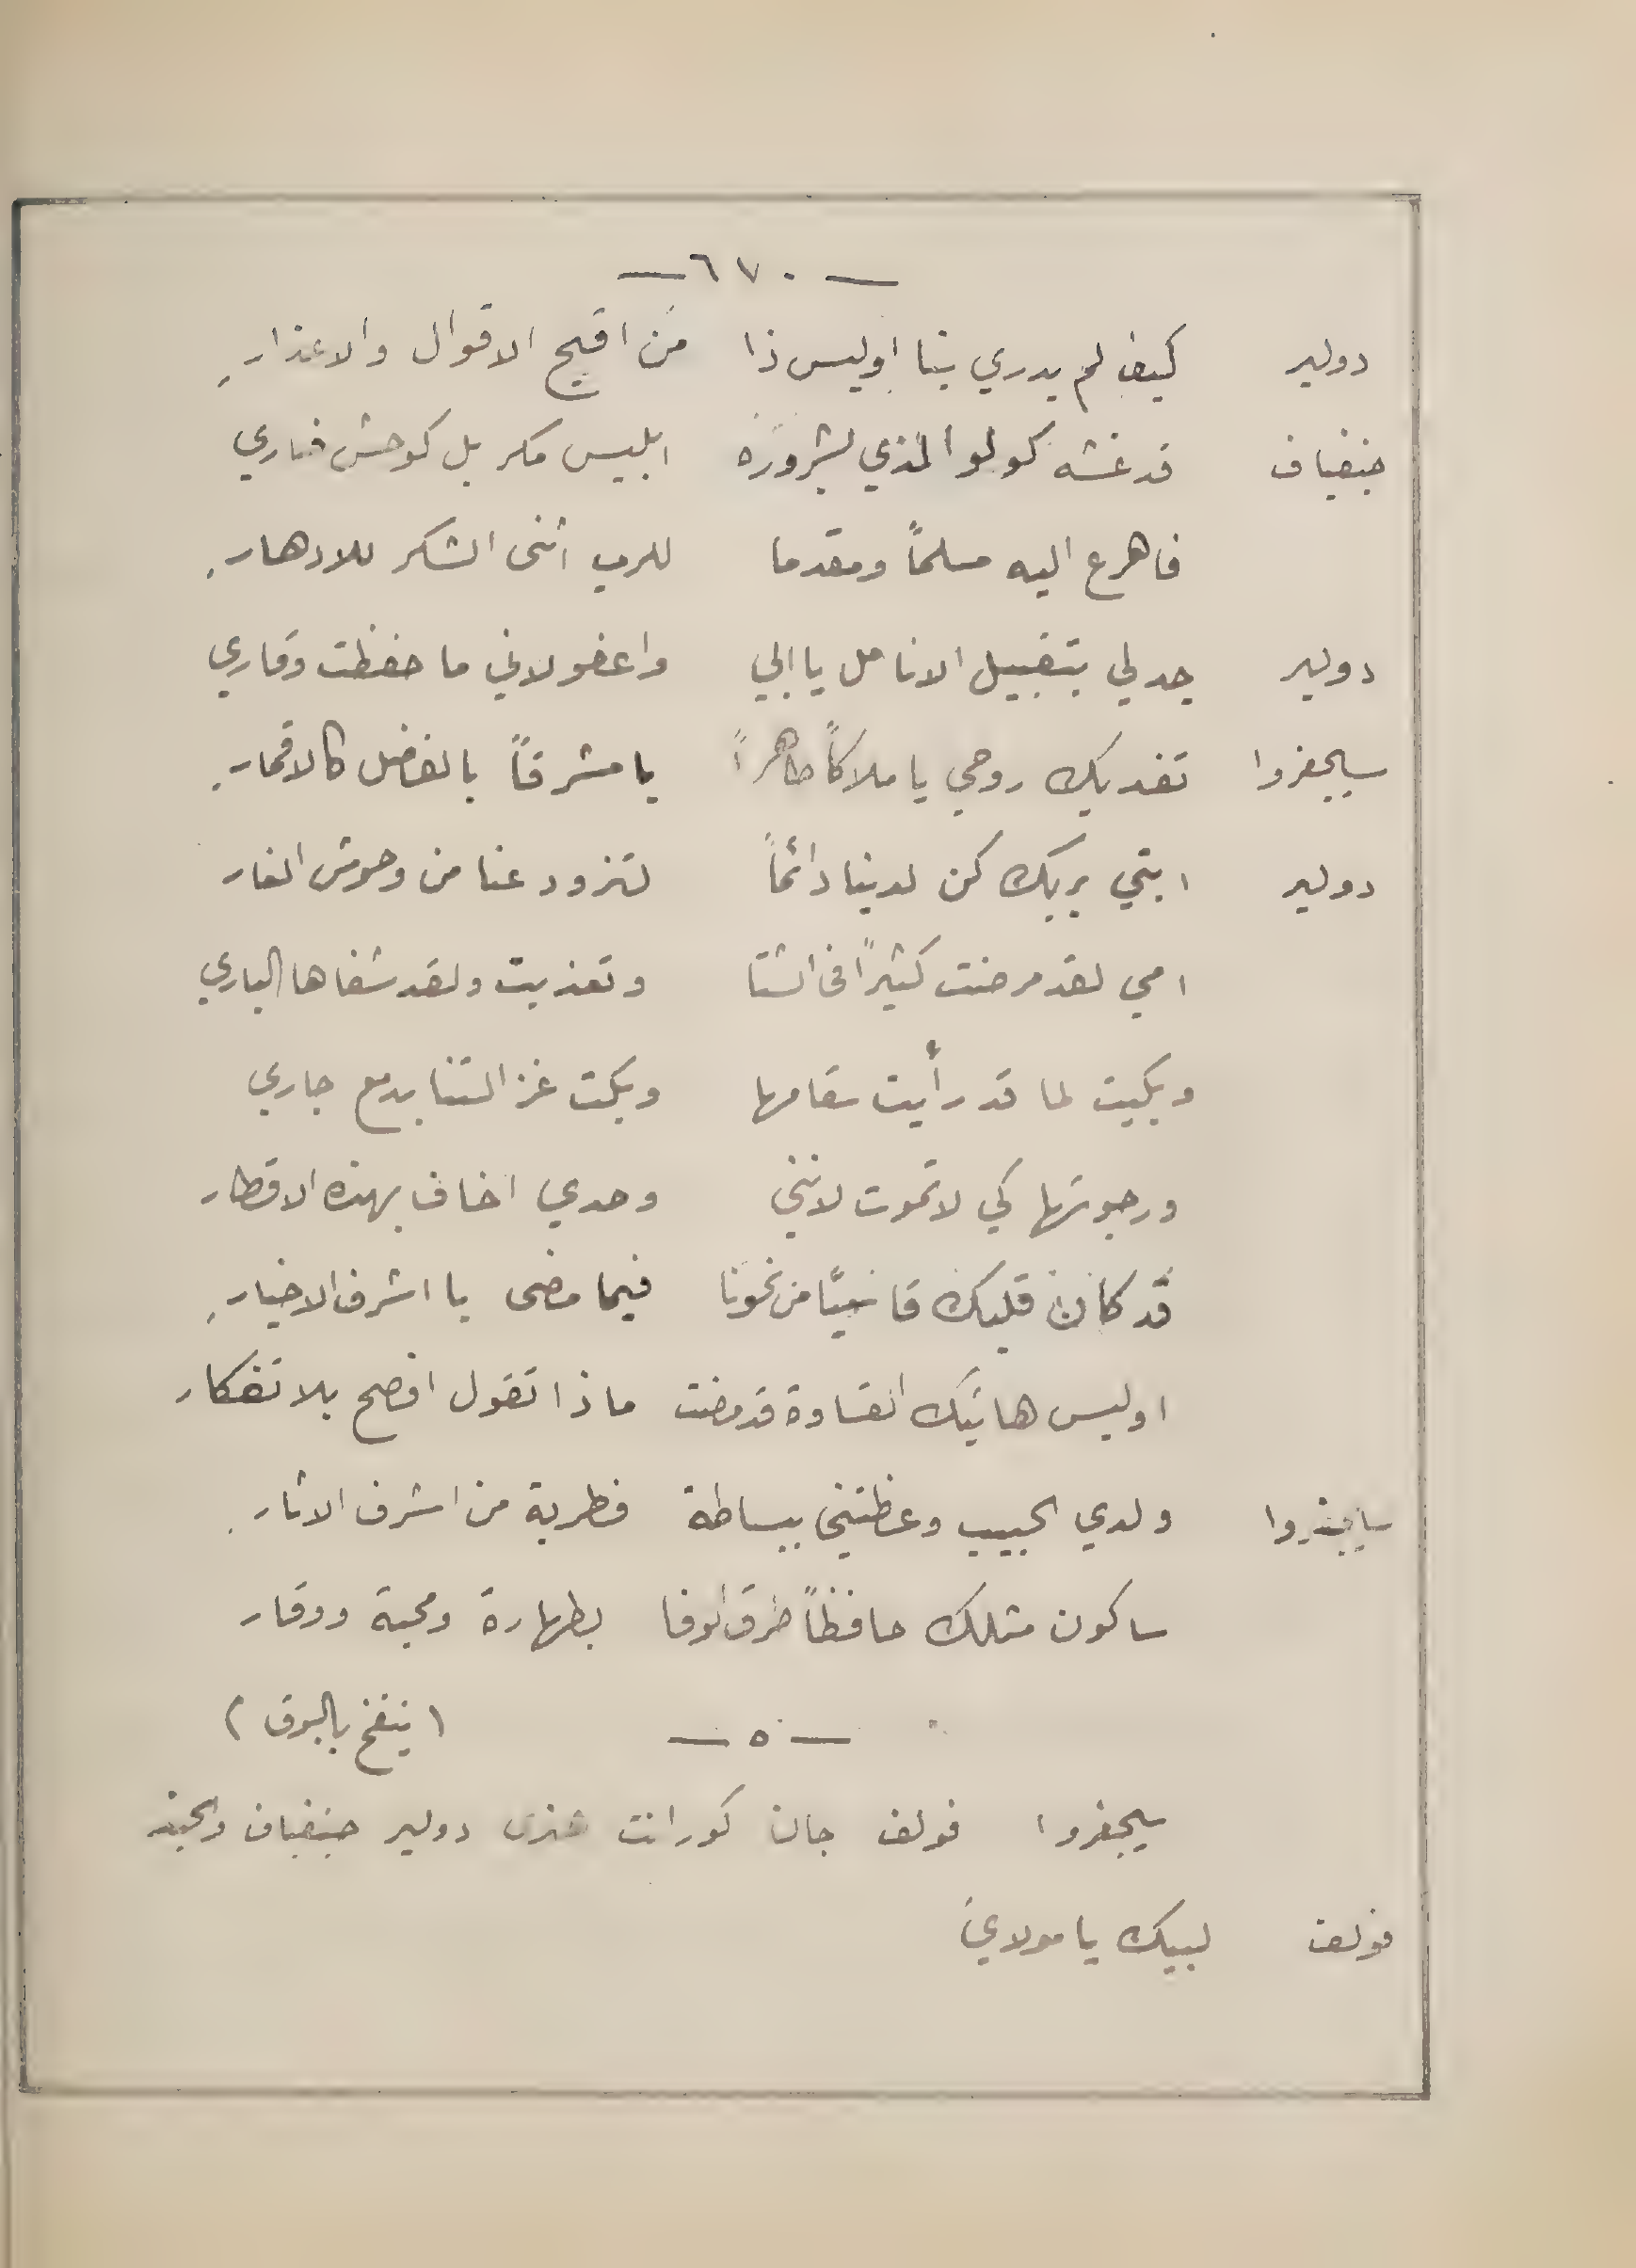 — ٦٧٠ —
دولير كيف لم يدري بنا اوليس ذا من اقبح الاقوال والاعذار
جنفياف قد غشه كولو الذي بشروره ابليس مكر بل كوحش ضاري
فاهرع اليه مسلماً ومقدما للرب اثنى الشكر للادهار
دولير جد لي بتقبيل الانامل يا ابي واعفو لاني ما حفظت وقاري
سيجفروا تفديك روحي يا ملاكاً طاهراً يا مشرقاً بالفضل كالاقمار
دولير ابتي بربك كن لدينا دائماً لتزود عنا من وحوش الغار
امي لقد مرضت كثيراً في الشتا وتعذبت ولقد شفاها الباري
وبكيت لما قد رأيت سقامها وبكت غزالتنا بدمع جاري
ورجوتها كي لا تموت لانني وحدي اخاف بهذه الاقطار
قد كان قلبك قاسيًا من نحونا فيما مضى يا اشرف الاخيار
اوليس هاتيك القساوة قد مضت ماذا تقول افصح بلا تفكار
سايجفروا ولدي الحبيب وعظتني ببساطة فطرية من اشرف الاثار
ساكون مثلك حافظاً طرق الوفا بطهارة ومحبة ووقار
(ينفخ بالبوق)
— ٥ —
سيجفروا فولف جان كورانت هنري دولير جنفياف والجند
فولف لبيك يا مولاي